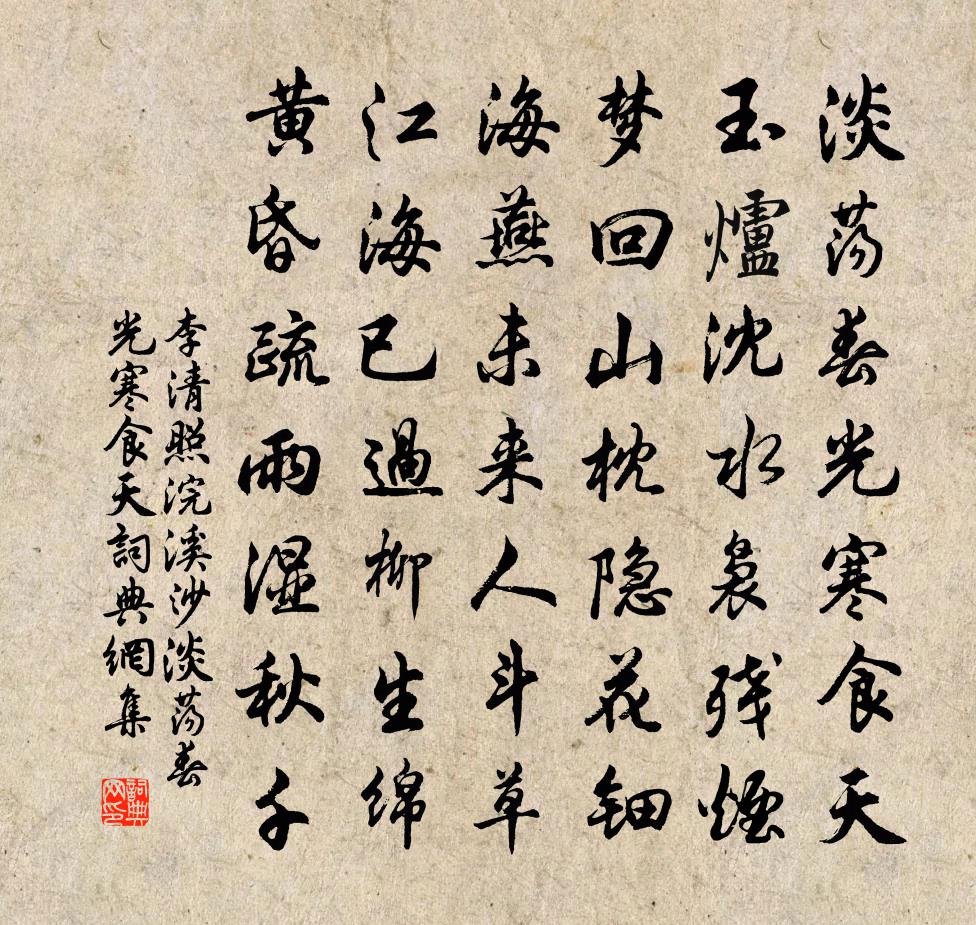 淡荡春光寒食天
玉爐沈水袅残煙
梦回山枕隐花钿
海燕未来人斗草
江海已過柳生绵
黄昏疏雨湿秋千
李清照浣溪沙淡荡春
光寒食天詞典網集
詞典网印